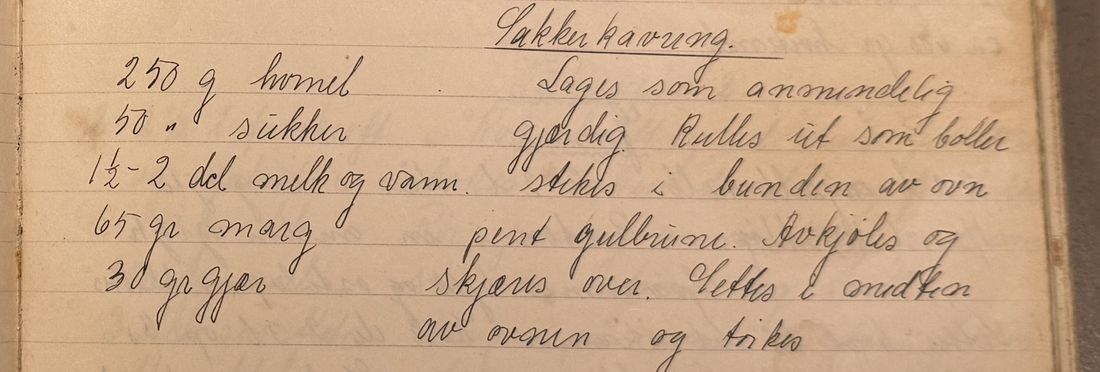 Sukkerkavring.
250 g hvmel
50 " sukker
1½ - 2 del melk og vann.
65 gr marg
30 gr gjær
Lages som anmindelig
gjærdig. Rulles ut som boller
stekes i bunden av ovn
pent gulbrune. Avkjøles og
skjæres over. Settes i midten
av ovnen og tørkes